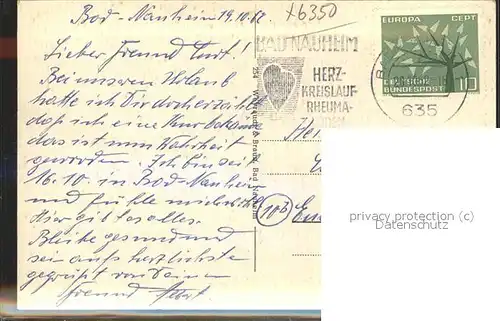 Bad-Nauheim 19.10.62
x6350
Lieber Freund Curt!
Bei unserem Urlaub
hatte ich Dir doch erzählt
daß ich eine Kur bekomme
das ist nun Wahrheit
geworden. Ich bin seit
16.10. in Bad-Nauheim
und fühle mich wohl
Hier gibt es alles.
Bleibe gesund und
sei aufs herzlichste
gegrüßt von Deinem
Freund
BAD NAUHEIM
HERZ-
KREISLAUF-
RHEUMA-
EUROPA CEPT
DEUTSCHE
BUNDESPOST 10
635
254
Bad Nauheim
(16b)
privacy protection (c)
Datenschutz